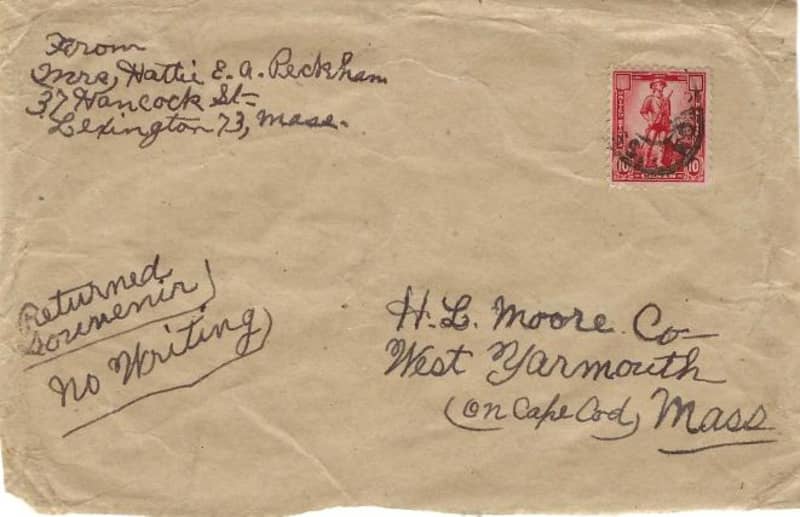 From
Mrs, Hattie E. A. Peckham
37 Hancock St=
Lexington 73, Mass.
10 10
Returned
Souvenir
No Writing
H. L. Moore Co
West Yarmouth
(on Cape Cod) Mass